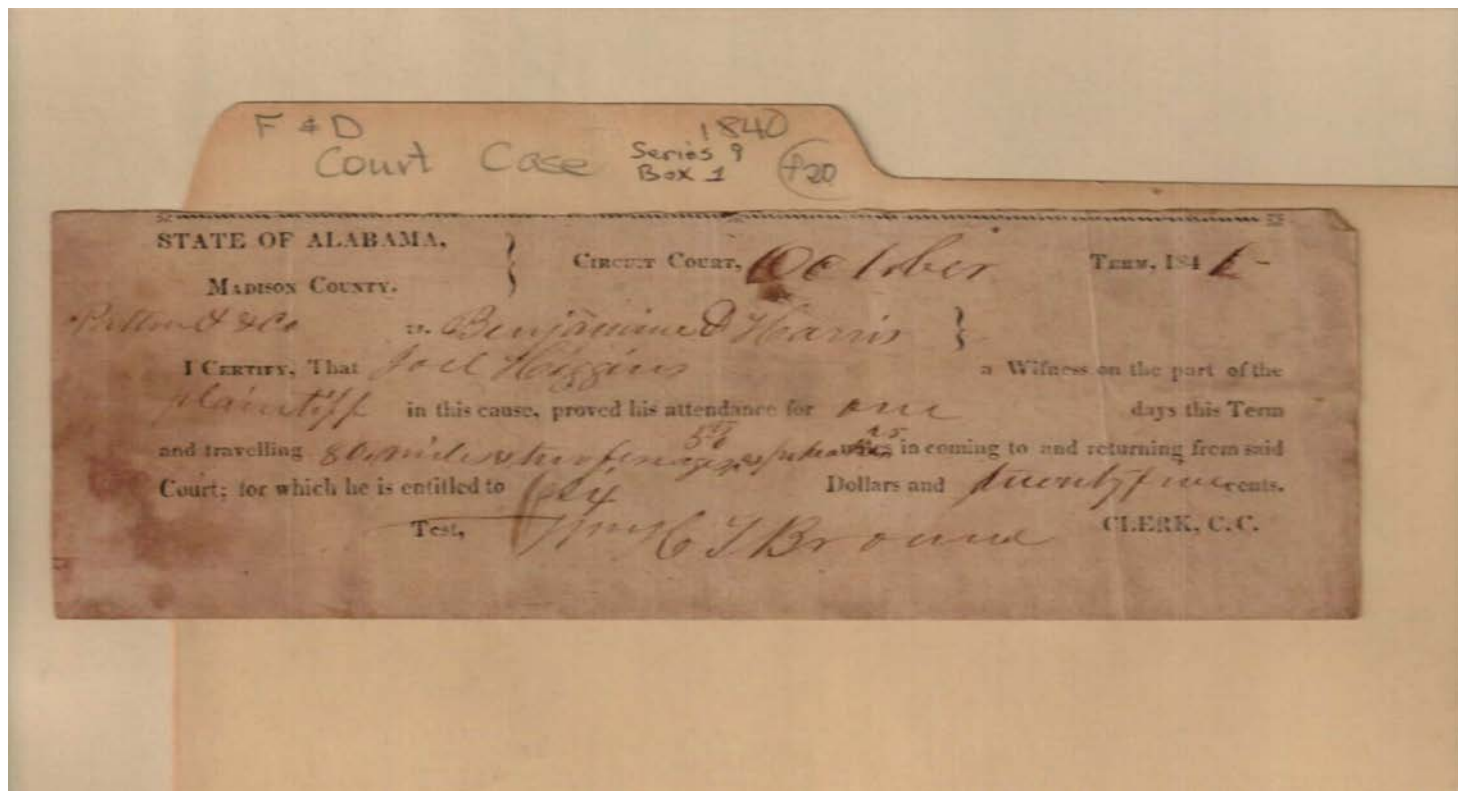 F & D 1840
Court Case Series 9
Box 1 f20
STATE OF ALABAMA,
MADISON COUNTY.
CIRCUIT COURT, October TERM, 184
& Co vs. Benjamine D Harris
I CERTIFY, That Joel Higgins a Witness on the part of the
plaintiff in this cause, proved his attendance for one days this Term
and travelling 80 miles two ferriages in coming to and returning from said
Court; for which he is entitled to Dollars and twenty five cents.
Test, Browne CLERK, C. C.